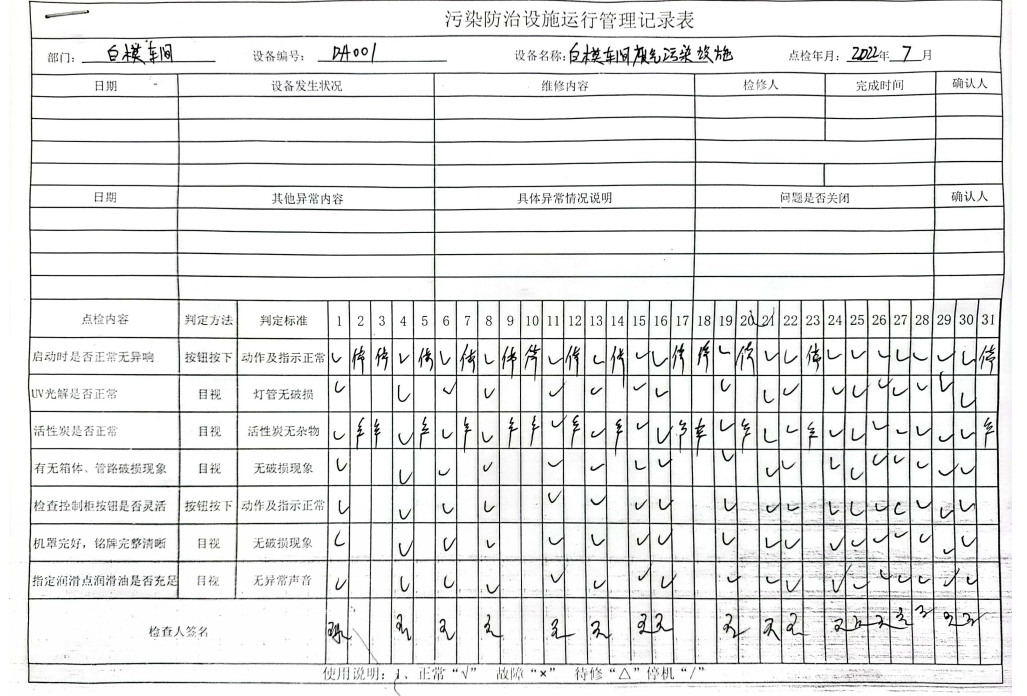 污染防治设施运行管理记录表
部门: 白模车间 设备编号: DA001 设备名称: 白模车间废气污染设施 点检年月: 2022年 7 月
日期 设备发生状况 维修内容 检修人 完成时间 确认人
日期 其他异常内容 具体异常情况说明 问题是否关闭 确认人
点检内容 判定方法 判定标准 1 2 3 4 5 6 7 8 9 10 11 12 13 14 15 16 17 18 19 20 21 22 23 24 25 26 27 28 29 30 31
启动时是否正常无异响 按钮按下 动作及指示正常 ✓ 停 停 ✓ 停 ✓ 停 ✓ 停 停 ✓ 停 ✓ 停 ✓ ✓ 停 停 ✓ 停 ✓ ✓ 停 ✓ ✓ ✓ ✓ ✓ ✓ ✓ 停
UV光解是否正常 目视 灯管无破损 ✓ ✓ ✓ ✓ ✓ ✓ ✓ ✓ ✓ ✓ ✓ ✓ ✓ ✓ ✓ ✓ ✓ ✓
活性炭是否正常 目视 活性炭无杂物 ✓ ✓ ✓ ✓ ✓ ✓ ✓ ✓ ✓ ✓ ✓ ✓ ✓ ✓ ✓ ✓ ✓ ✓
有无箱体、管路破损现象 目视 无破损现象 ✓ ✓ ✓ ✓ ✓ ✓ ✓ ✓ ✓ ✓ ✓ ✓ ✓ ✓ ✓ ✓ ✓ ✓
检查控制柜按钮是否灵活 按钮按下 动作及指示正常 ✓ ✓ ✓ ✓ ✓ ✓ ✓ ✓ ✓ ✓ ✓ ✓ ✓ ✓ ✓ ✓ ✓ ✓
机罩完好，铭牌完整清晰 目视 无破损现象 ✓ ✓ ✓ ✓ ✓ ✓ ✓ ✓ ✓ ✓ ✓ ✓ ✓ ✓ ✓ ✓ ✓ ✓
指定润滑点润滑油是否充足 目视 无异常声音 ✓ ✓ ✓ ✓ ✓ ✓ ✓ ✓ ✓ ✓ ✓ ✓ ✓ ✓ ✓ ✓ ✓ ✓
检查人签名
使用说明: 1、正常“√” 故障“×” 待修“△” 停机“/”